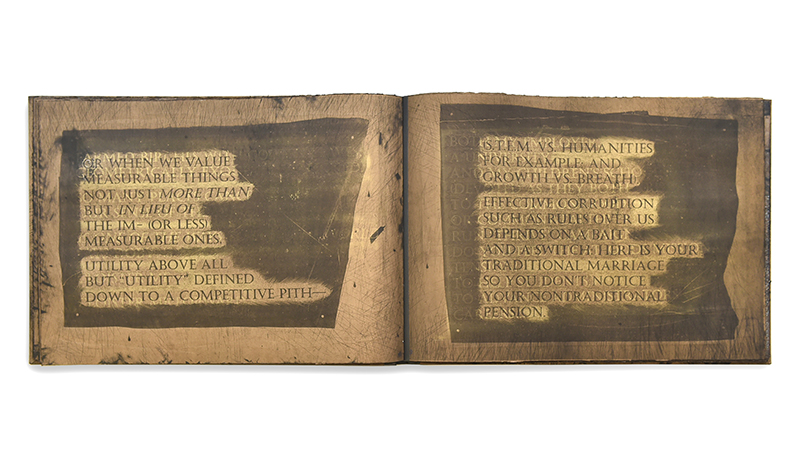 OR WHEN WE VALUE
MEASURABLE THINGS
NOT JUST MORE THAN
BUT IN LIEU OF
THE IM– (OR LESS)
MEASURABLE ONES,
UTILITY ABOVE ALL
BUT "UTILITY" DEFINED
DOWN TO A COMPETITIVE PITH—
(S.T.E.M. VS. HUMANITIES
FOR EXAMPLE; AND
GROWTH VS. BREATH)
EFFECTIVE CORRUPTION
SUCH AS RULES OVER US
DEPENDS ON A BAIT
AND A SWITCH: HERE IS YOUR
TRADITIONAL MARRIAGE
SO YOU DON'T NOTICE
YOUR NONTRADITIONAL
PENSION.